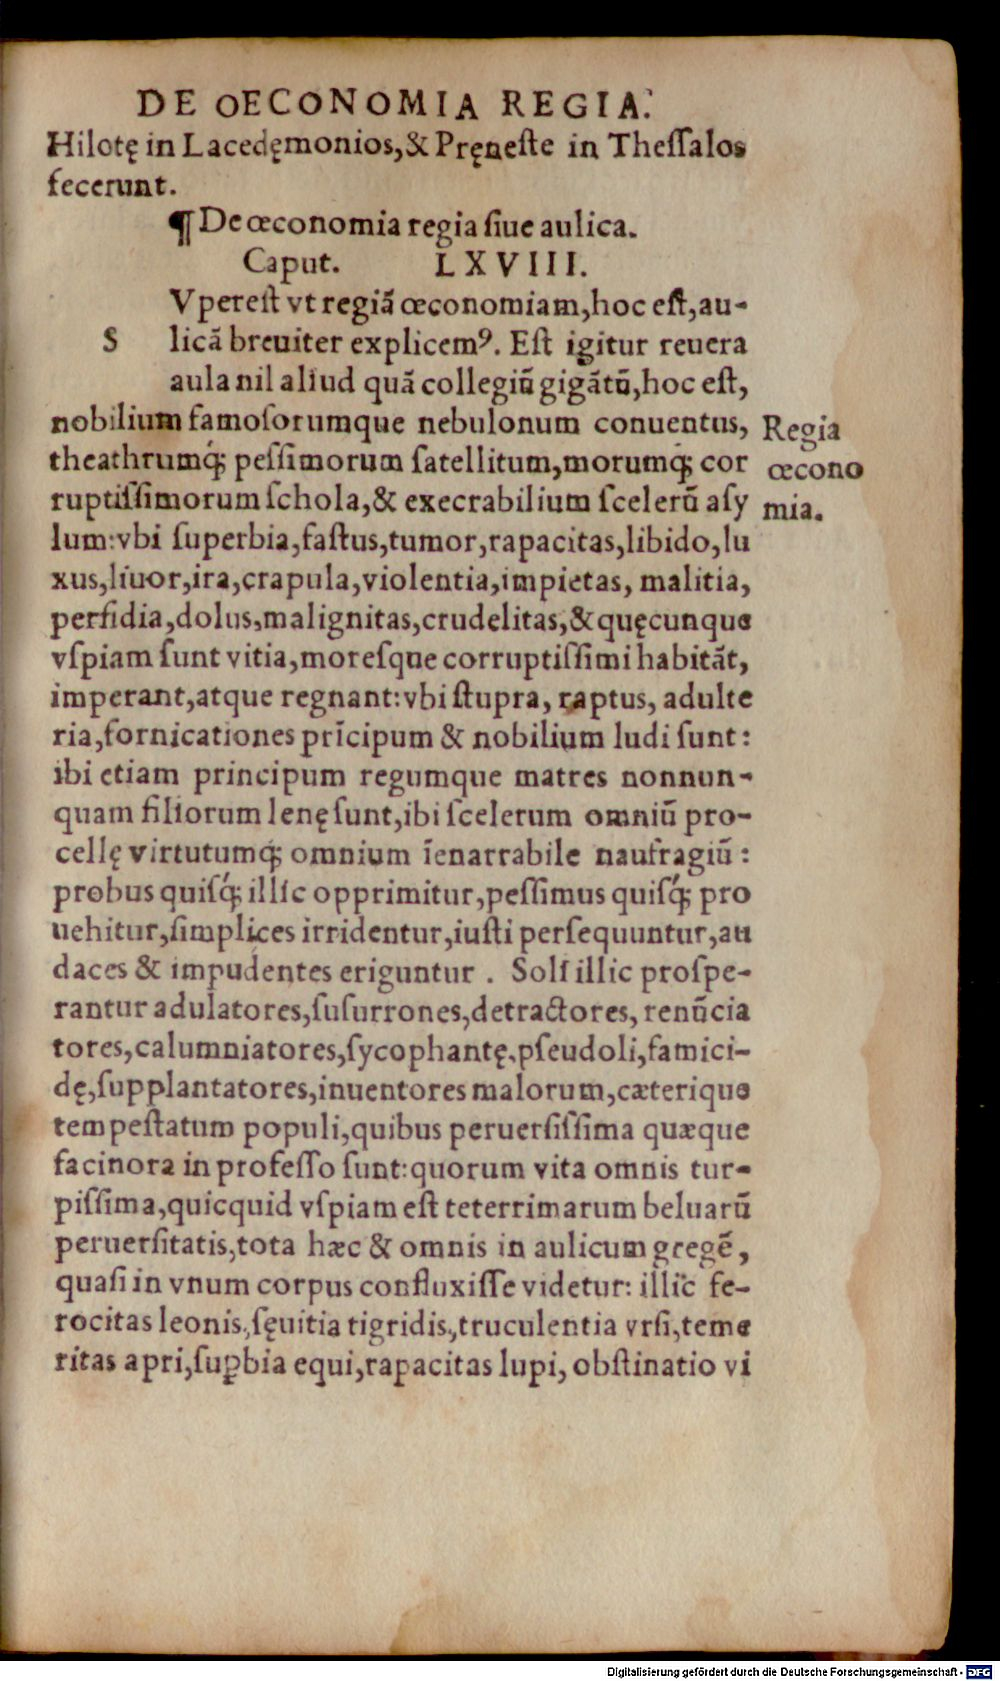 DE OECONOMIA REGIA.
Hilotę in Lacedęmonios,& Pręneſte in Theſſalos
fecerunt.
¶ De œconomia regia ſiue aulica.
Caput. LXVIII.
Vpereſt vt regiã œconomiam,hoc eſt,au-
S licã breuiter explicemꝰ. Eſt igitur reuera
aula nil aliud quã collegiũ gigãtũ,hoc eſt,
nobilium famoſorumque nebulonum conuentus,
theathrumq́; peſſimorum ſatellitum,morumq́; cor
ruptiſſimorum ſchola,& execrabilium ſcelerũ aſy
lum:vbi ſuperbia,faſtus,tumor,rapacitas,libido,lu
xus,liuor,ira,crapula,violentia,impietas, malitia,
perfidia,dolus,malignitas,crudelitas,& quęcunque
vſpiam ſunt vitia,moreſque corruptiſſimi habitãt,
imperant,atque regnant:vbi ſtupra, raptus, adulte
ria,fornicationes prĩcipum & nobilium ludi ſunt:
ibi etiam principum regumque matres nonnun-
quam filiorum lenę ſunt,ibi ſcelerum omniũ pro-
cellę virtutumq́; omnium ĩenarrabile naufragiũ:
probus quiſq́; illic opprimitur,peſſimus quiſq́; pro
uehitur,ſimplices irridentur,iuſti perſequuntur,au
daces & impudentes eriguntur . Soli illic proſpe-
rantur adulatores,ſuſurrones,detractores, renũcia
tores,calumniatores,ſycophantę,pſeudoli,famici-
dę,ſupplantatores,inuentores malorum,cæterique
tempeſtatum populi,quibus peruerſiſſima quæque
facinora in profeſſo ſunt:quorum vita omnis tur-
piſſima,quicquid vſpiam eſt teterrimarum beluarũ
peruerſitatis,tota hæc & omnis in aulicum gregẽ,
quaſi in vnum corpus confluxiſſe videtur: illic fe-
rocitas leonis,ſęuitia tigridis,truculentia vrſi,teme
ritas apri,ſuꝑbia equi,rapacitas lupi, obſtinatio vi
Regia
œcono
mia.
Digitalisierung gefördert durch die Deutsche Forschungsgemeinschaft - DFG